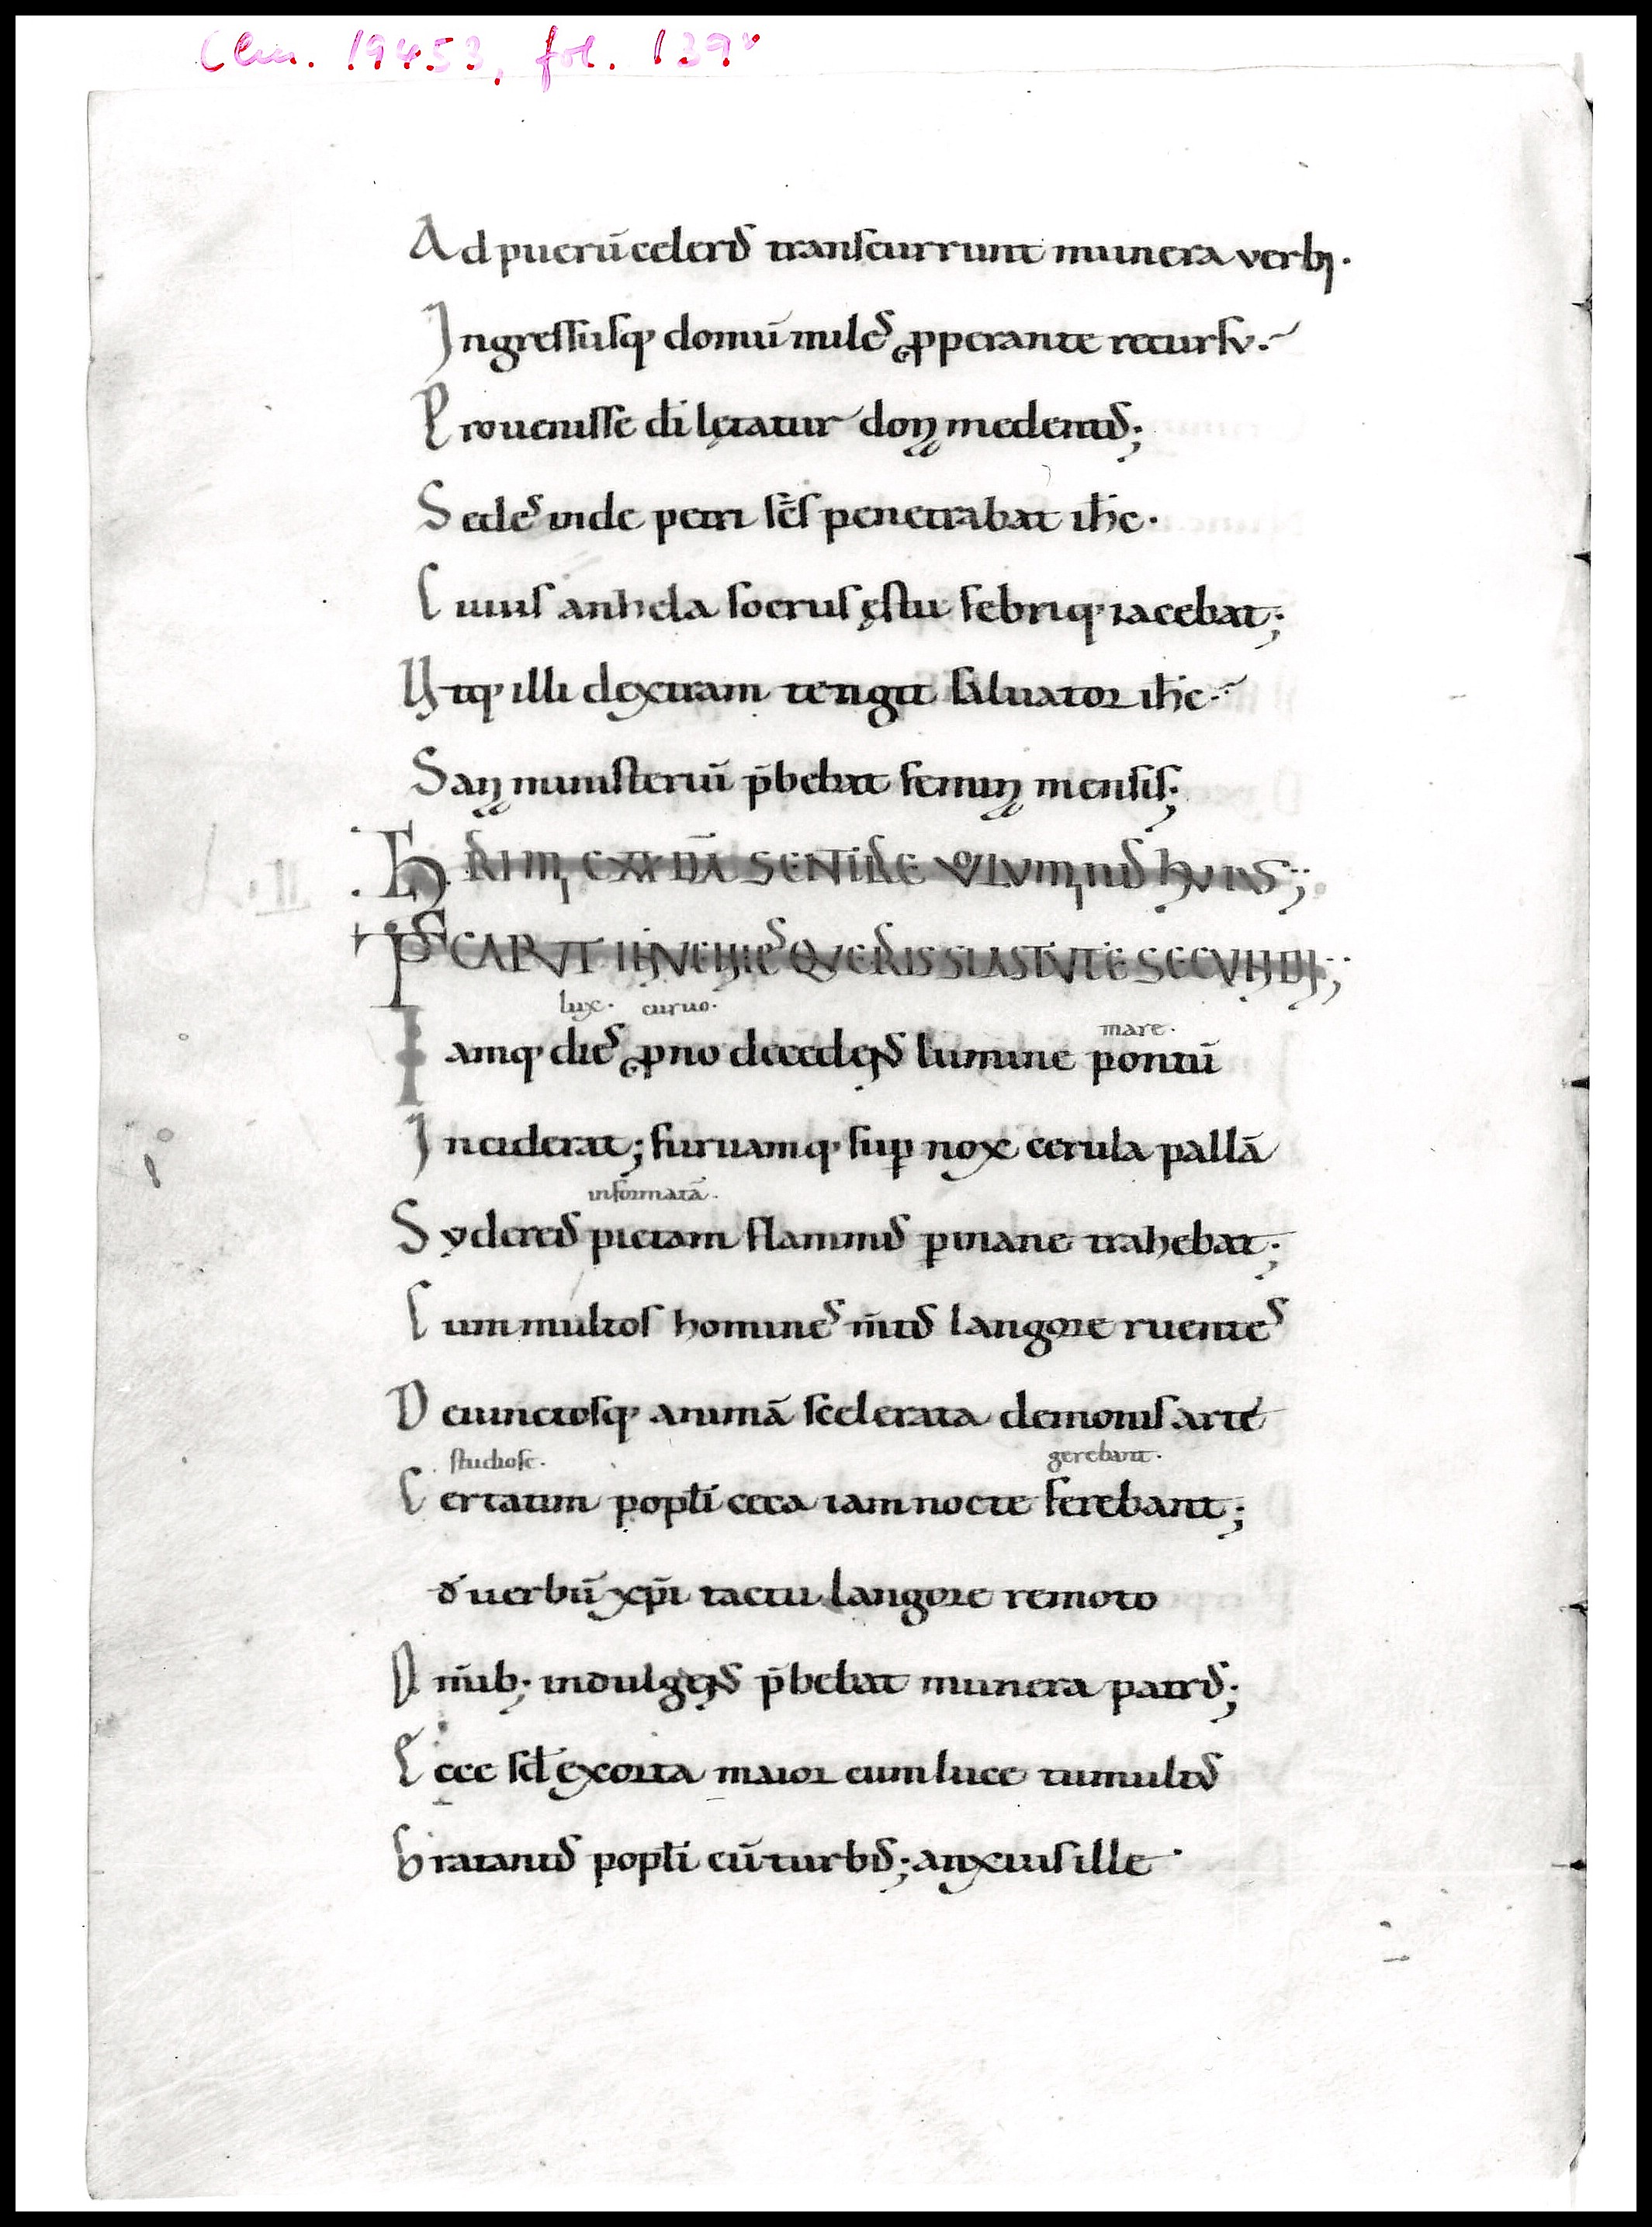 Clm. 19453, fol. 139v
Ad puerū celeris transcurrunt munera verbi.
Ingressusq; domū miles ꝓperante recursv.
Prouenisse di lętatur dona medentis;
Sedes inde petri scs penetrabat ihc.
Cuius anhela socrus ęstu febriq; iacebat;
Utq; illi dextram tetigit saluator ihc.
Sana ministeriū p̄bebat femina mensis;
PS CAPVT INVENIES QVERIS SI ASTVTE SECVNDI;
lux. curuo. mare.
Iamq; dies ꝓno decedens lumine pontū
Inciderat; furuamq; sup nox cerula pallā
informatā.
Sydereis pictam flammis ꝑ inane trahebat;
Cum multos homines m̄tis langore ruentes
Deuinctosq; animā scelerata demonis arte
studiose. gerebant.
Certatim popli ceca iam nocte ferebant;
uerbū xp̄i tactu langore remoto
Om̄ib; indulgens p̄bebat munera patris;
Ecce sed exorta maior cum luce tumultus
hratantis popli cū turbis; anxius ille